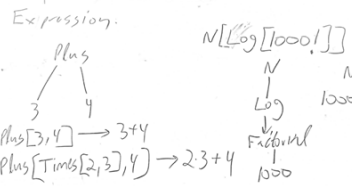 Expression.
Plus
3 4
Plus[3,4] → 3+4
Plus[Times[2,3],4] → 2·3+4
N[Log[1000!]]
N
Log
Factorial
1000
N
1000